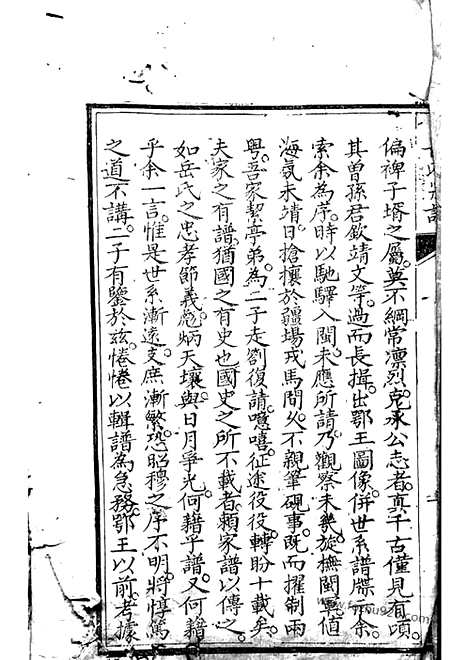 偏裨子壻之屬莫不綱常凜烈克承公志者真千古僅見有頃
其曾孫君欽靖文等過而長揖出鄂王圖像併世系譜牒示余
索余為序時以馳驛入閩未應所請乃觀察未幾旋撫閩車值
海氛未靖日搶攘於疆場戎馬間久不親筆硯事既而擢制兩
粵吾家絜亭弟為二子走劄復請噫嘻征途役役轉盼十載矣
夫家之有譜猶國之有史也國史之所不載者賴家譜以傳之
如岳氏之忠孝節義彪炳天壤與日月爭光何藉乎譜又何藉
乎余一言惟是世系漸遠支庶漸繁恐昭穆之序不明將惇篤
之道不講二子有鑒於茲惓惓以輯譜為急務鄂王以前考據